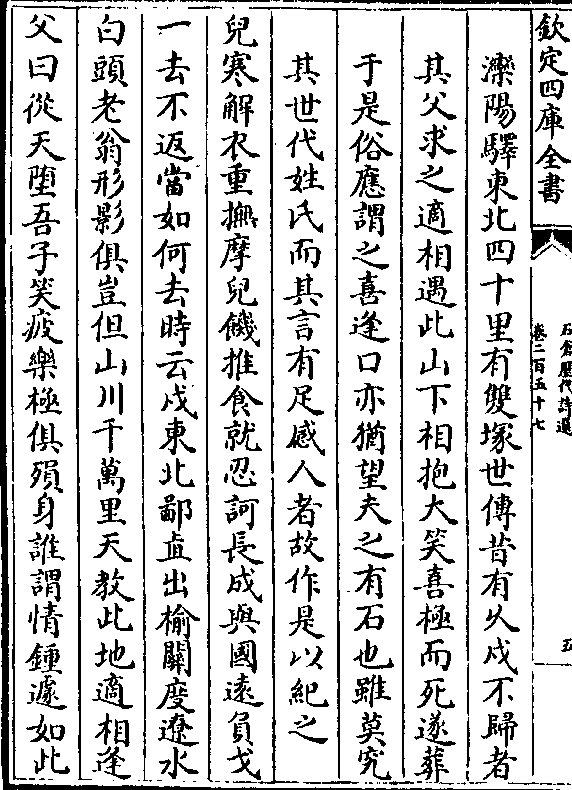 欽定四庫全書
石倉歷代詩選
卷二百五十七
五
灤陽驛東北四十里有雙塚世傳昔有久戍不歸者
其父求之適相遇此山下相抱大笑喜極而死遂葬
于是俗應謂之喜逢口亦猶望夫之有石也雖莫究
其世代姓氏而其言有足感人者故作是以紀之
兒寒解衣重撫摩兒饑推食就忍訶長成與國遠負戈
一去不返當如何去時云戍東北鄙直出榆關度遼水
白頭老翁形影俱豈但山川千萬里天教此地適相逢
父曰從天墮吾子笑疲樂極俱殞身誰謂情鍾遽如此